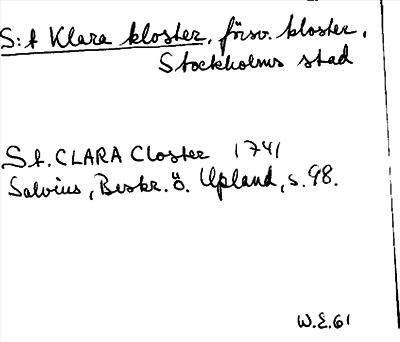 S:t Klara kloster, försv. kloster,
Stockholms stad
St. CLARA Closter 1741
Salvius, Beskr. ö. Upland, s. 98.
W.E. 61